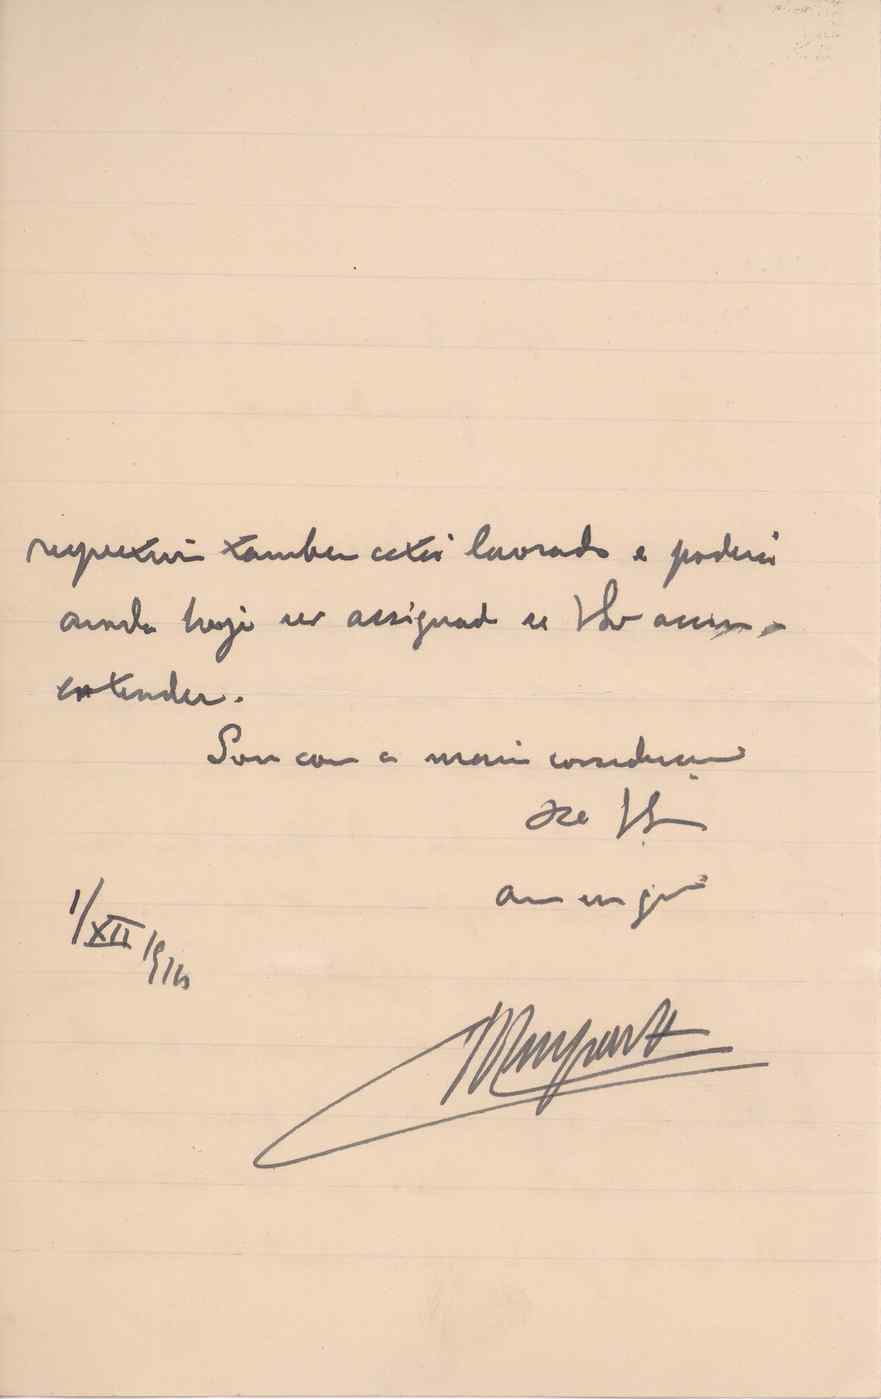 respectivo tambem está lavrado e poderá
ainda hoje ser assignado se VExª assim o
entender.
Sou com a maior consideração
De VExª
1/XII 1916